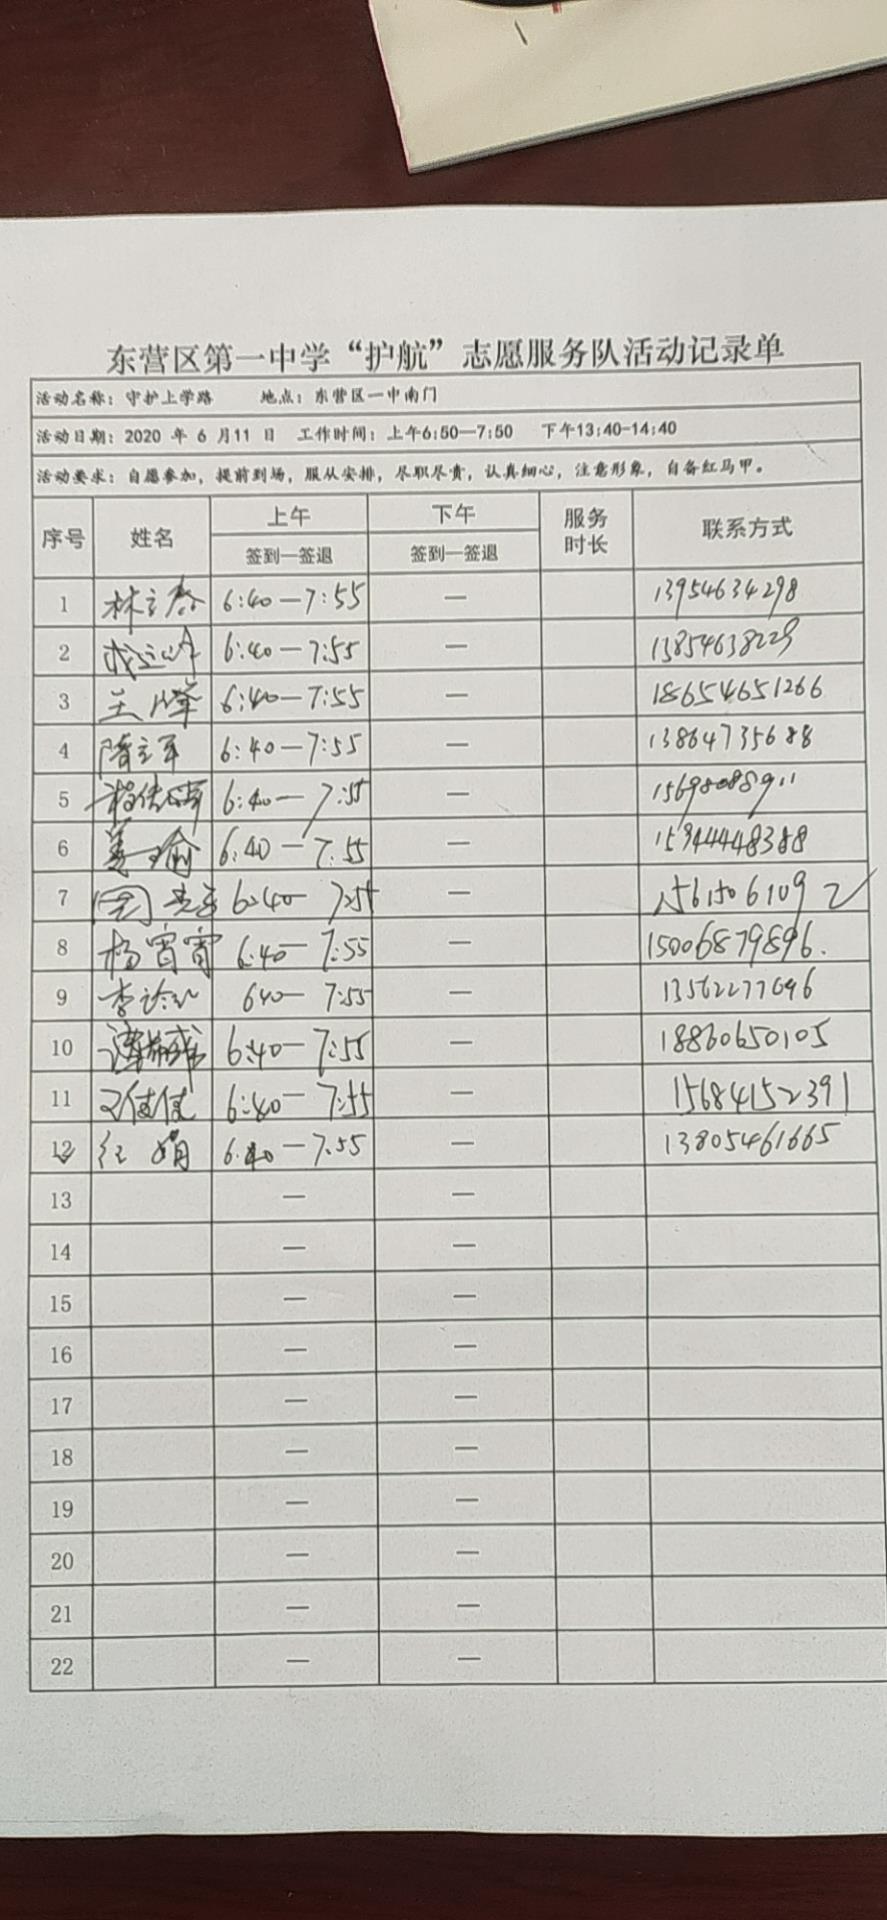 东营区第一中学“护航”志愿服务队活动记录单
活动名称：守护上学路 地点：东营区一中南门
活动日期：2020 年 6 月11 日 工作时间：上午6:50—7:50 下午13:40-14:40
活动要求：自愿参加，提前到场，服从安排，尽职尽责，认真细心，注意形象，自备红马甲。
序号 姓名 上午 下午 服务时长 联系方式
签到—签退 签到—签退
1 6:40—7:55 — 13954634298
2 6:40—7:55 — 13854638229
3 王峰 6:40—7:55 — 18654651266
4 隋立军 6:40—7:55 — 13864735688
5 6:40—7:55 — 15698088911
6 姜瑜 6:40—7:55 — 15944448388
7 6:40—7:55 — 15615061092
8 杨宵宵 6:40—7:55 — 15006879896.
9 640—7:55 — 13562277696
10 6:40—7:55 — 18860650105
11 王倩倩 6:40—7:55 — 15684152391
12 红娟 6:40—7.55 — 13805461665
13 — —
14 — —
15 — —
16 — —
17 — —
18 — —
19 — —
20 — —
21 — —
22 — —